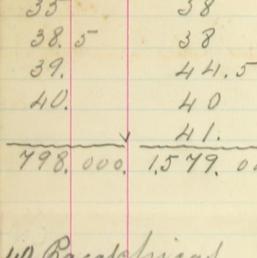 35 38
38.5 38
39. 44.5
40. 40
41.
798.000. 1,579.0